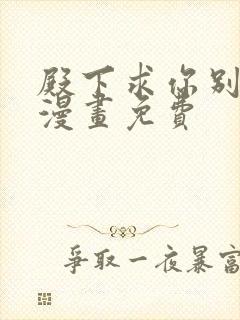 殿下求你别
漫畫免費
爭取一夜暴富